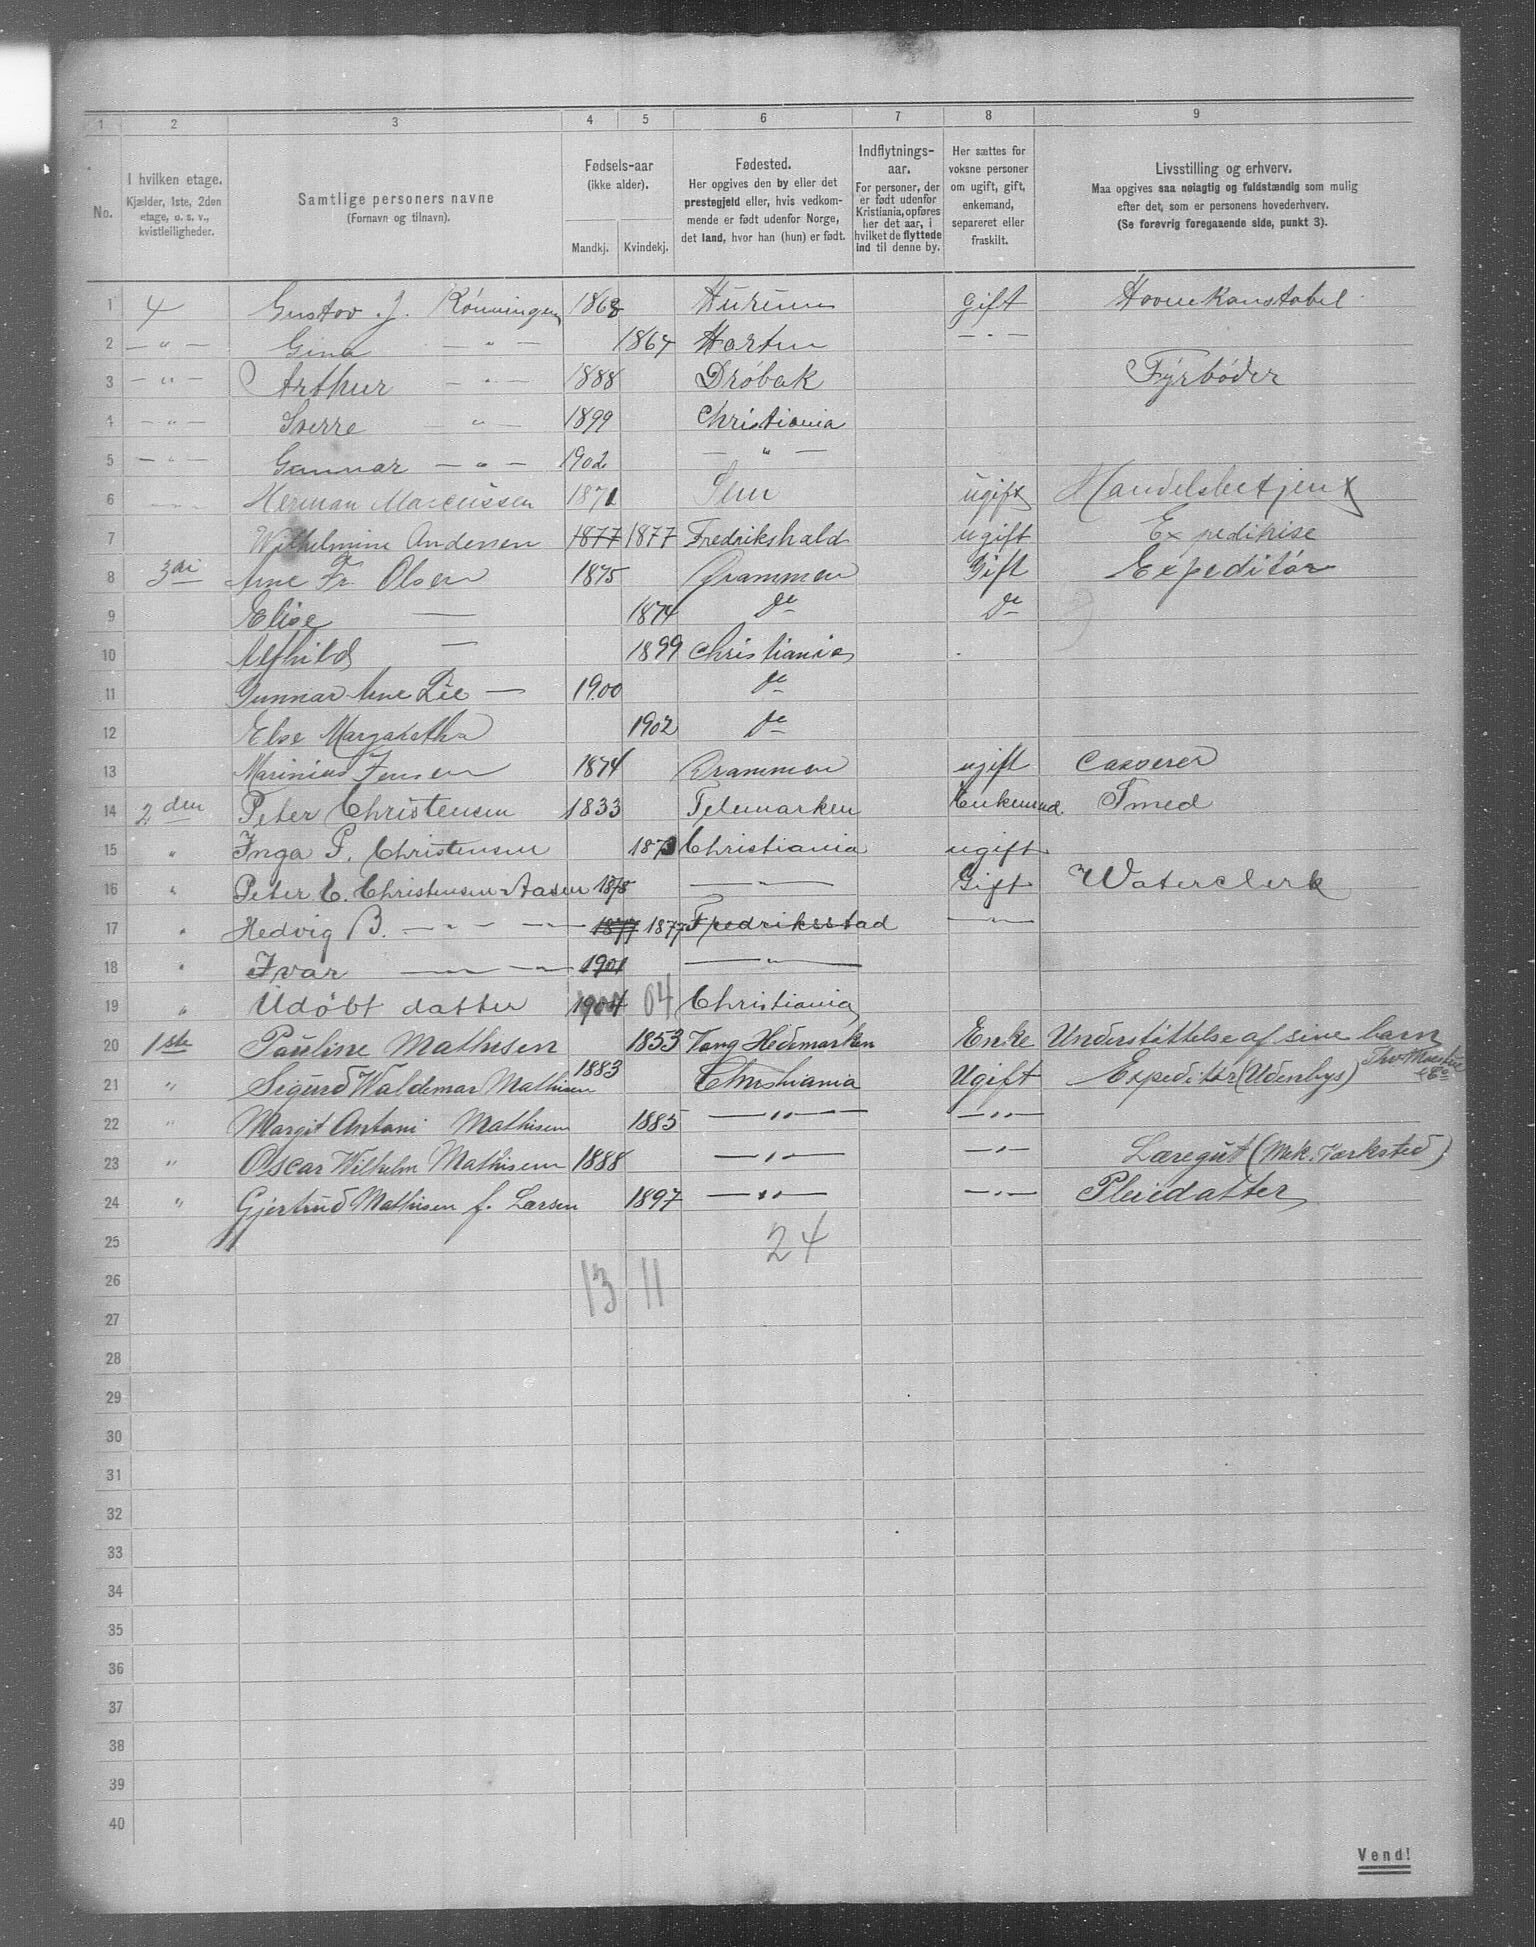 1 2 3 4 5 6 7 8 9
No.
I hvilken etage.
Kjælder, 1ste, 2den
etage, o. s. v.,
kvistleiligheder.
Samtlige personers navne
(Fornavn og tilnavn).
Fødsels-aar
(ikke alder).
Mandkj. Kvindekj.
Fødested.
Her opgives den by eller det
prestegjeld eller, hvis vedkom-
mende er født udenfor Norge,
det land, hvor han (hun) er født.
Indflytnings-
aar.
For personer, der
er født udenfor
Kristiania, opføres
her det aar, i
hvilket de flyttede
ind til denne by.
Her sættes for
voksne personer
om ugift, gift,
enkemand,
separeret eller
fraskilt.
Livsstilling og erhverv.
Maa opgives saa nøiagtig og fuldstændig som mulig
efter det, som er personens hovederhverv.
(Se forøvrig foregaaende side, punkt 3).
1 4 Gustav J. Rönningen 1868 Hurum gift Havnekonstabel
2 — " — Gina — " — 1867 Horten — " —
3 — " — Arthur — " — 1888 Dröbak Fyrböder
4 — " — Sverre — " — 1899 Christiania
5 — " — Gunnar — " — 1902 — " —
6 — " — Herman Marcussen 1871 Sem ugift Handelsbetjent
7 Wilhelmine Andersen 1877 1877 Fredrikshald ugift Expeditrise
8 3di Arne Fr. Olsen 1875 Drammen Gift Expeditör
9 Elise — 1874 do do
10 Alfhild — 1899 Christiania
11 Gunnar Arne Lie — 1900 do
12 Else Margaretha 1902 do
13 Marinius Jensen 1874 Drammen ugift Casserer
14 2den Peter Christensen 1833 Telemarken Enkemnd. Smed
15 " Inga P. Christensen 1873 Christiania ugift
16 " Peter C. Christensen-Aasen 1878 — " — Gift Waterclerk
17 " Hedvig B. — " — " — 1877 1877 Fredriksstad — " —
18 " Ivar — " — " — 1901 — " —
19 " Udöbt datter 1904 04 Christiania
20 1ste Pauline Mathisen 1853 Vang Hedemarken Enke Understöttelse af sine barn
21 " Sigurd Waldemar Mathisen 1883 Christiania Ugift Expeditör (Udenbys)
22 " Margit Antoni Mathisen 1885 — " — — " —
23 " Oscar Wilhelm Mathisen 1888 — " — — " — Læregut (Mek. Værksted)
24 " Gjertrud Mathisen f. Larsen 1897 — " — — " — Pleiedatter
25 24
26 13 11
27
28
29
30
31
32
33
34
35
36
37
38
39
40
Vend!